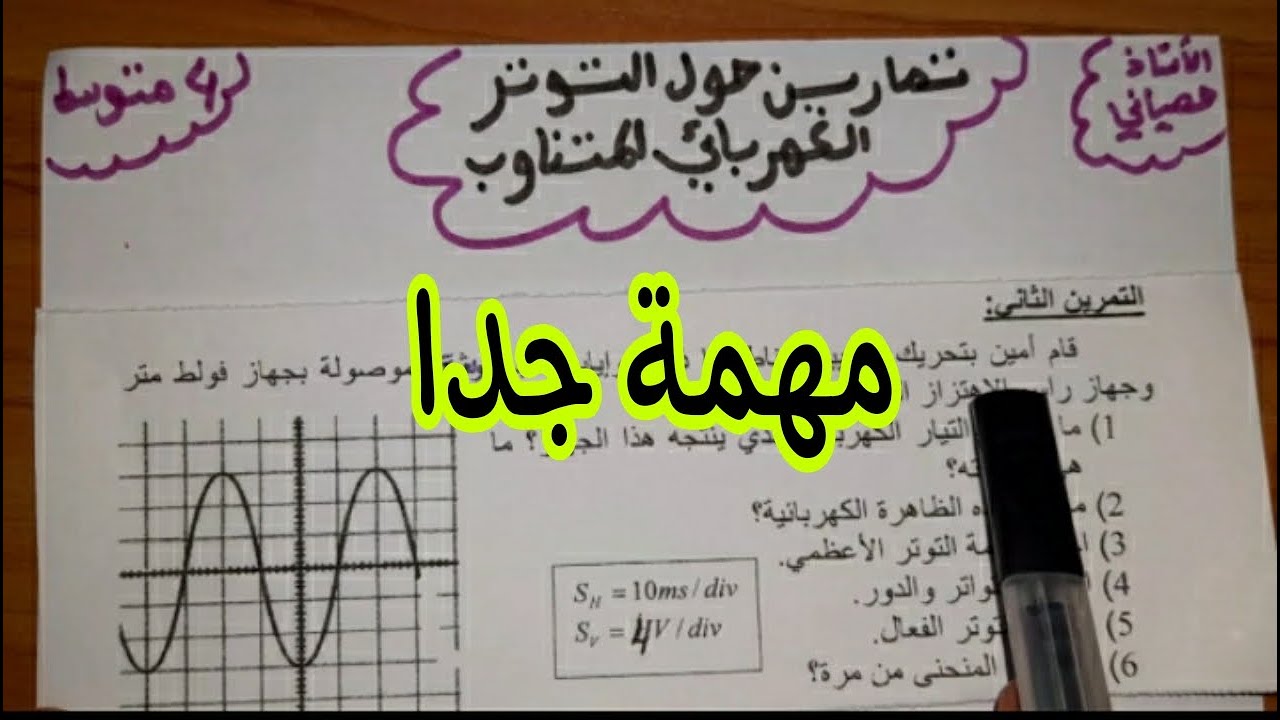 الأستاذ
حصياني
تمارين حول التوتر
الكهربائي المتناوب
4 متوسط
مهمة جدا
التمرين الثاني:
قام أمين بتحريك موصولة بجهاز فولط متر
وجهاز الاهتزاز
1) ما التيار ينتجه هذا ؟ ما
؟
2) الظاهرة الكهربائية؟
3) التوتر الأعظمي.
4) والدور.
5) الفعال.
6) المنحنى من مرة؟
S_H = 10ms/div
S_V = 4V/div